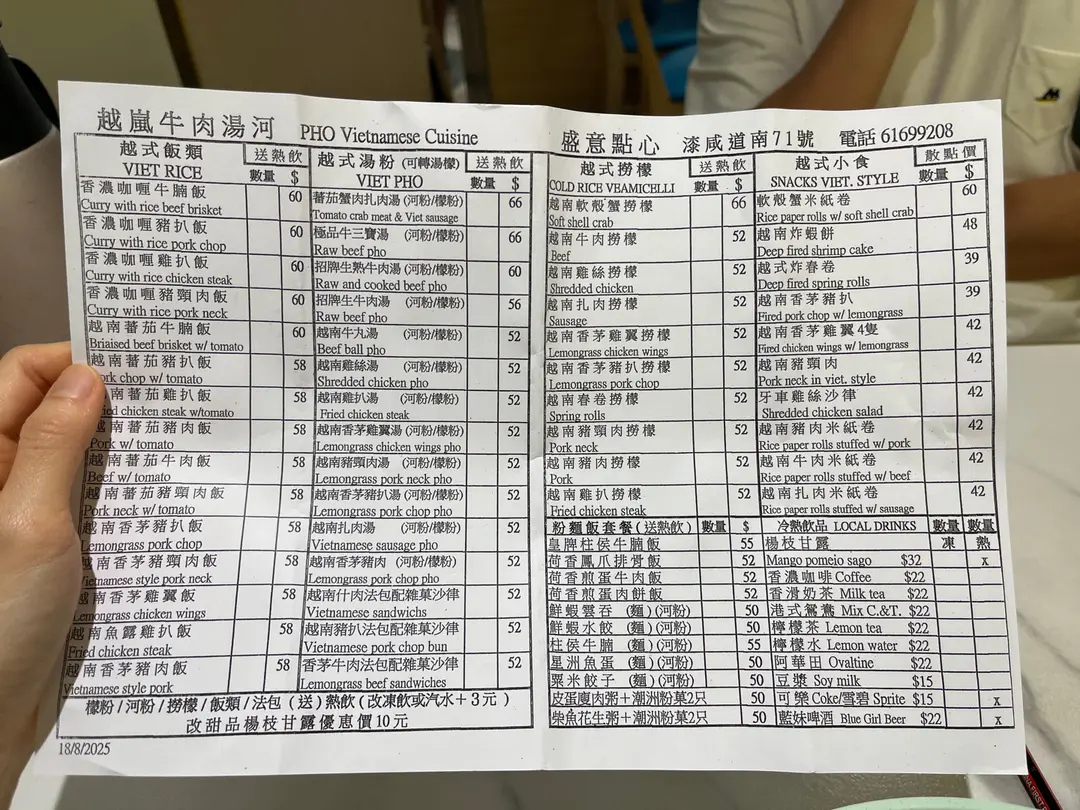 越嵐牛肉湯河 PHO Vietnamese Cuisine
盛意點心 漆咸道南71號 電話 61699208
越式飯類 送熱飲
VIET RICE 數量 $
香濃咖喱牛腩飯 60
Curry with rice beef brisket
香濃咖喱豬扒飯 60
Curry with rice pork chop
香濃咖喱雞扒飯 60
Curry with rice chicken steak
香濃咖喱豬頸肉飯 60
Curry with rice pork neck
越南蕃茄牛腩飯 60
Briaised beef brisket w/ tomato
越南蕃茄豬扒飯 58
ork chop w/ tomato
南蕃茄雞扒飯 58
ied chicken steak w/tomato
越南蕃茄豬肉飯 58
Pork w/ tomato
越南蕃茄牛肉飯 58
Beef w/ tomato
越南蕃茄豬頸肉飯 58
Pork neck w/ tomato
越南香茅豬扒飯 58
Lemongrass pork chop
越南香茅豬頸肉飯 58
Vietnamese style pork neck
越南香茅雞翼飯 58
Lemongrass chicken wings
越南魚露雞扒飯 58
Fried chicken steak
越南香茅豬肉飯 58
Vietnamese style pork
越式湯粉 (可轉湯檬) 送熱飲
VIET PHO 數量 $
蕃茄蟹肉扎肉湯 (河粉/檬粉) 66
Tomato crab meat & Viet sausage
極品牛三寶湯 (河粉/檬粉) 66
Raw beef pho
招牌生熟牛肉湯 (河粉/檬粉) 60
Raw and cooked beef pho
招牌生牛肉湯 (河粉/檬粉) 56
Raw beef pho
越南牛丸湯 (河粉/檬粉) 52
Beef ball pho
越南雞絲湯 (河粉/檬粉) 52
Shredded chicken pho
越南雞扒湯 (河粉/檬粉) 52
Fried chicken steak
越南香茅雞翼湯 (河粉/檬粉) 52
Lemongrass chicken wings pho
越南豬頸肉湯 (河粉/檬粉) 52
Lemongrass pork neck pho
越南香茅豬扒湯 (河粉/檬粉) 52
Lemongrass pork chop pho
越南扎肉湯 (河粉/檬粉) 52
Vietnamese sausage pho
越南香茅豬肉 (河粉/檬粉) 52
Lemongrass pork chop pho
越南什肉法包配雜菓沙律 52
Vietnamese sandwichs
越南豬扒法包配雜菓沙律 52
Vietnamese pork chop bun
香茅牛肉法包配雜菓沙律 52
Lemongrass beef sandwiches
檬粉/河粉/撈檬/飯類/法包 (送) 熱飲 (改凍飲或汽水+3元)
改甜品楊枝甘露優惠價10元
18/8/2025
越式撈檬 送熱飲
COLD RICE VEAMICELLI 數量 $
越南軟殼蟹撈檬 66
Soft shell crab
越南牛肉撈檬 52
Beef
越南雞絲撈檬 52
Shredded chicken
越南扎肉撈檬 52
Sausage
越南香茅雞翼撈檬 52
Lemongrass chicken wings
越南香茅豬扒撈檬 52
Lemongrass pork chop
越南春卷撈檬 52
Spring rolls
越南豬頸肉撈檬 52
Pork neck
越南豬肉撈檬 52
Pork
越南雞扒撈檬 52
Fried chicken steak
粉麵飯套餐 (送熱飲) 數量 $
皇牌柱侯牛腩飯 55
荷香鳳爪排骨飯 52
荷香煎蛋牛肉飯 52
荷香煎蛋肉餅飯 52
鮮蝦雲吞 (麵)(河粉) 50
鮮蝦水餃 (麵)(河粉) 50
柱侯牛腩 (麵)(河粉) 55
星洲魚蛋 (麵)(河粉) 50
粟米餃子 (麵)(河粉) 50
皮蛋廋肉粥+潮洲粉菓2只 50
柴魚花生粥+潮洲粉菓2只 50
越式小食 散點價
SNACKS VIET. STYLE 數量 $
軟殼蟹米紙卷 60
Rice paper rolls w/ soft shell crab
越南炸蝦餅 48
Deep fired shrimp cake
越式炸春卷 39
Deep fired spring rolls
越南香茅豬扒 39
Fired pork chop w/ lemongrass
越南香茅雞翼4隻 42
Fired chicken wings w/ lemongrass
越南豬頸肉 42
Pork neck in viet. style
牙車雞絲沙律 42
Shredded chicken salad
越南豬肉米紙卷 42
Rice paper rolls stuffed w/ pork
越南牛肉米紙卷 42
Rice paper rolls stuffed w/ beef
越南扎肉米紙卷 42
Rice paper rolls stuffed w/ sausage
冷熱飲品 LOCAL DRINKS 數量 數量
楊枝甘露 凍 熱
Mango pomeio sago $32 x
香濃咖啡 Coffee $22
香滑奶茶 Milk tea $22
港式鴛鴦 Mix C.&T. $22
檸檬茶 Lemon tea $22
檸檬水 Lemon water $22
阿華田 Ovaltine $22
豆漿 Soy milk $15
可樂 Coke/雪碧 Sprite $15 x
藍妹啤酒 Blue Girl Beer $22 x